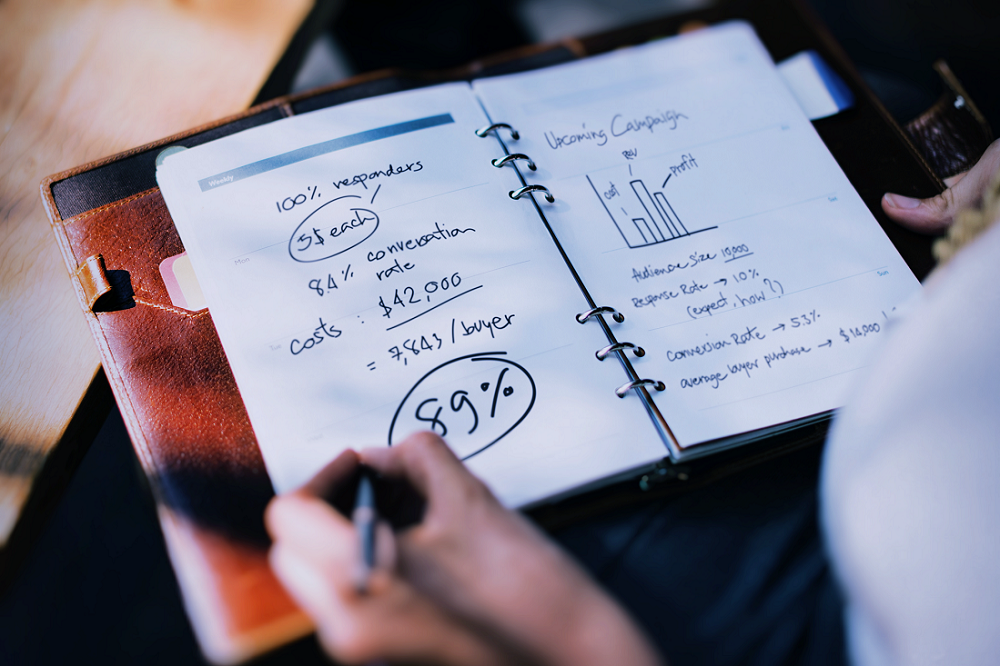 Weekly
100% responders
5$ each
Mon
84% converation
rate
costs : $42,000
= 7,843/buyer
89%
Upcoming Campaign
rev
profit
cost
Audience size 10,000
Response Rate → 10%
(expect, how?)
Sun
Conversion Rate → 5.3%
average buyer purchase → $10,000